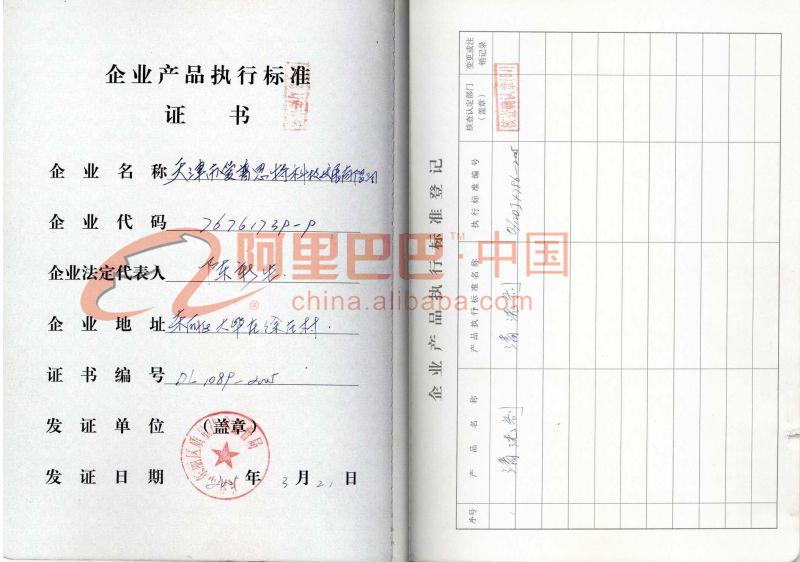 企业产品执行标准
证 书
企 业 名 称 天津市爱普思特科技发展有限公司
企 业 代 码 76761739-9
企业法定代表人 陈
企 业 地 址 东丽区大毕庄徐庄村
证 书 编 号 DL 1089-2005
发 证 单 位 (盖章)
发 证 日 期 2005 年 3 月 21 日
阿里巴巴·中国
TM
china.alibaba.com
企业产品执行标准登记
序号 产品名称 产品执行标准名称 执行标准编号 核查认定部门(盖章) 变更或注销记录
清洗剂 清洗剂